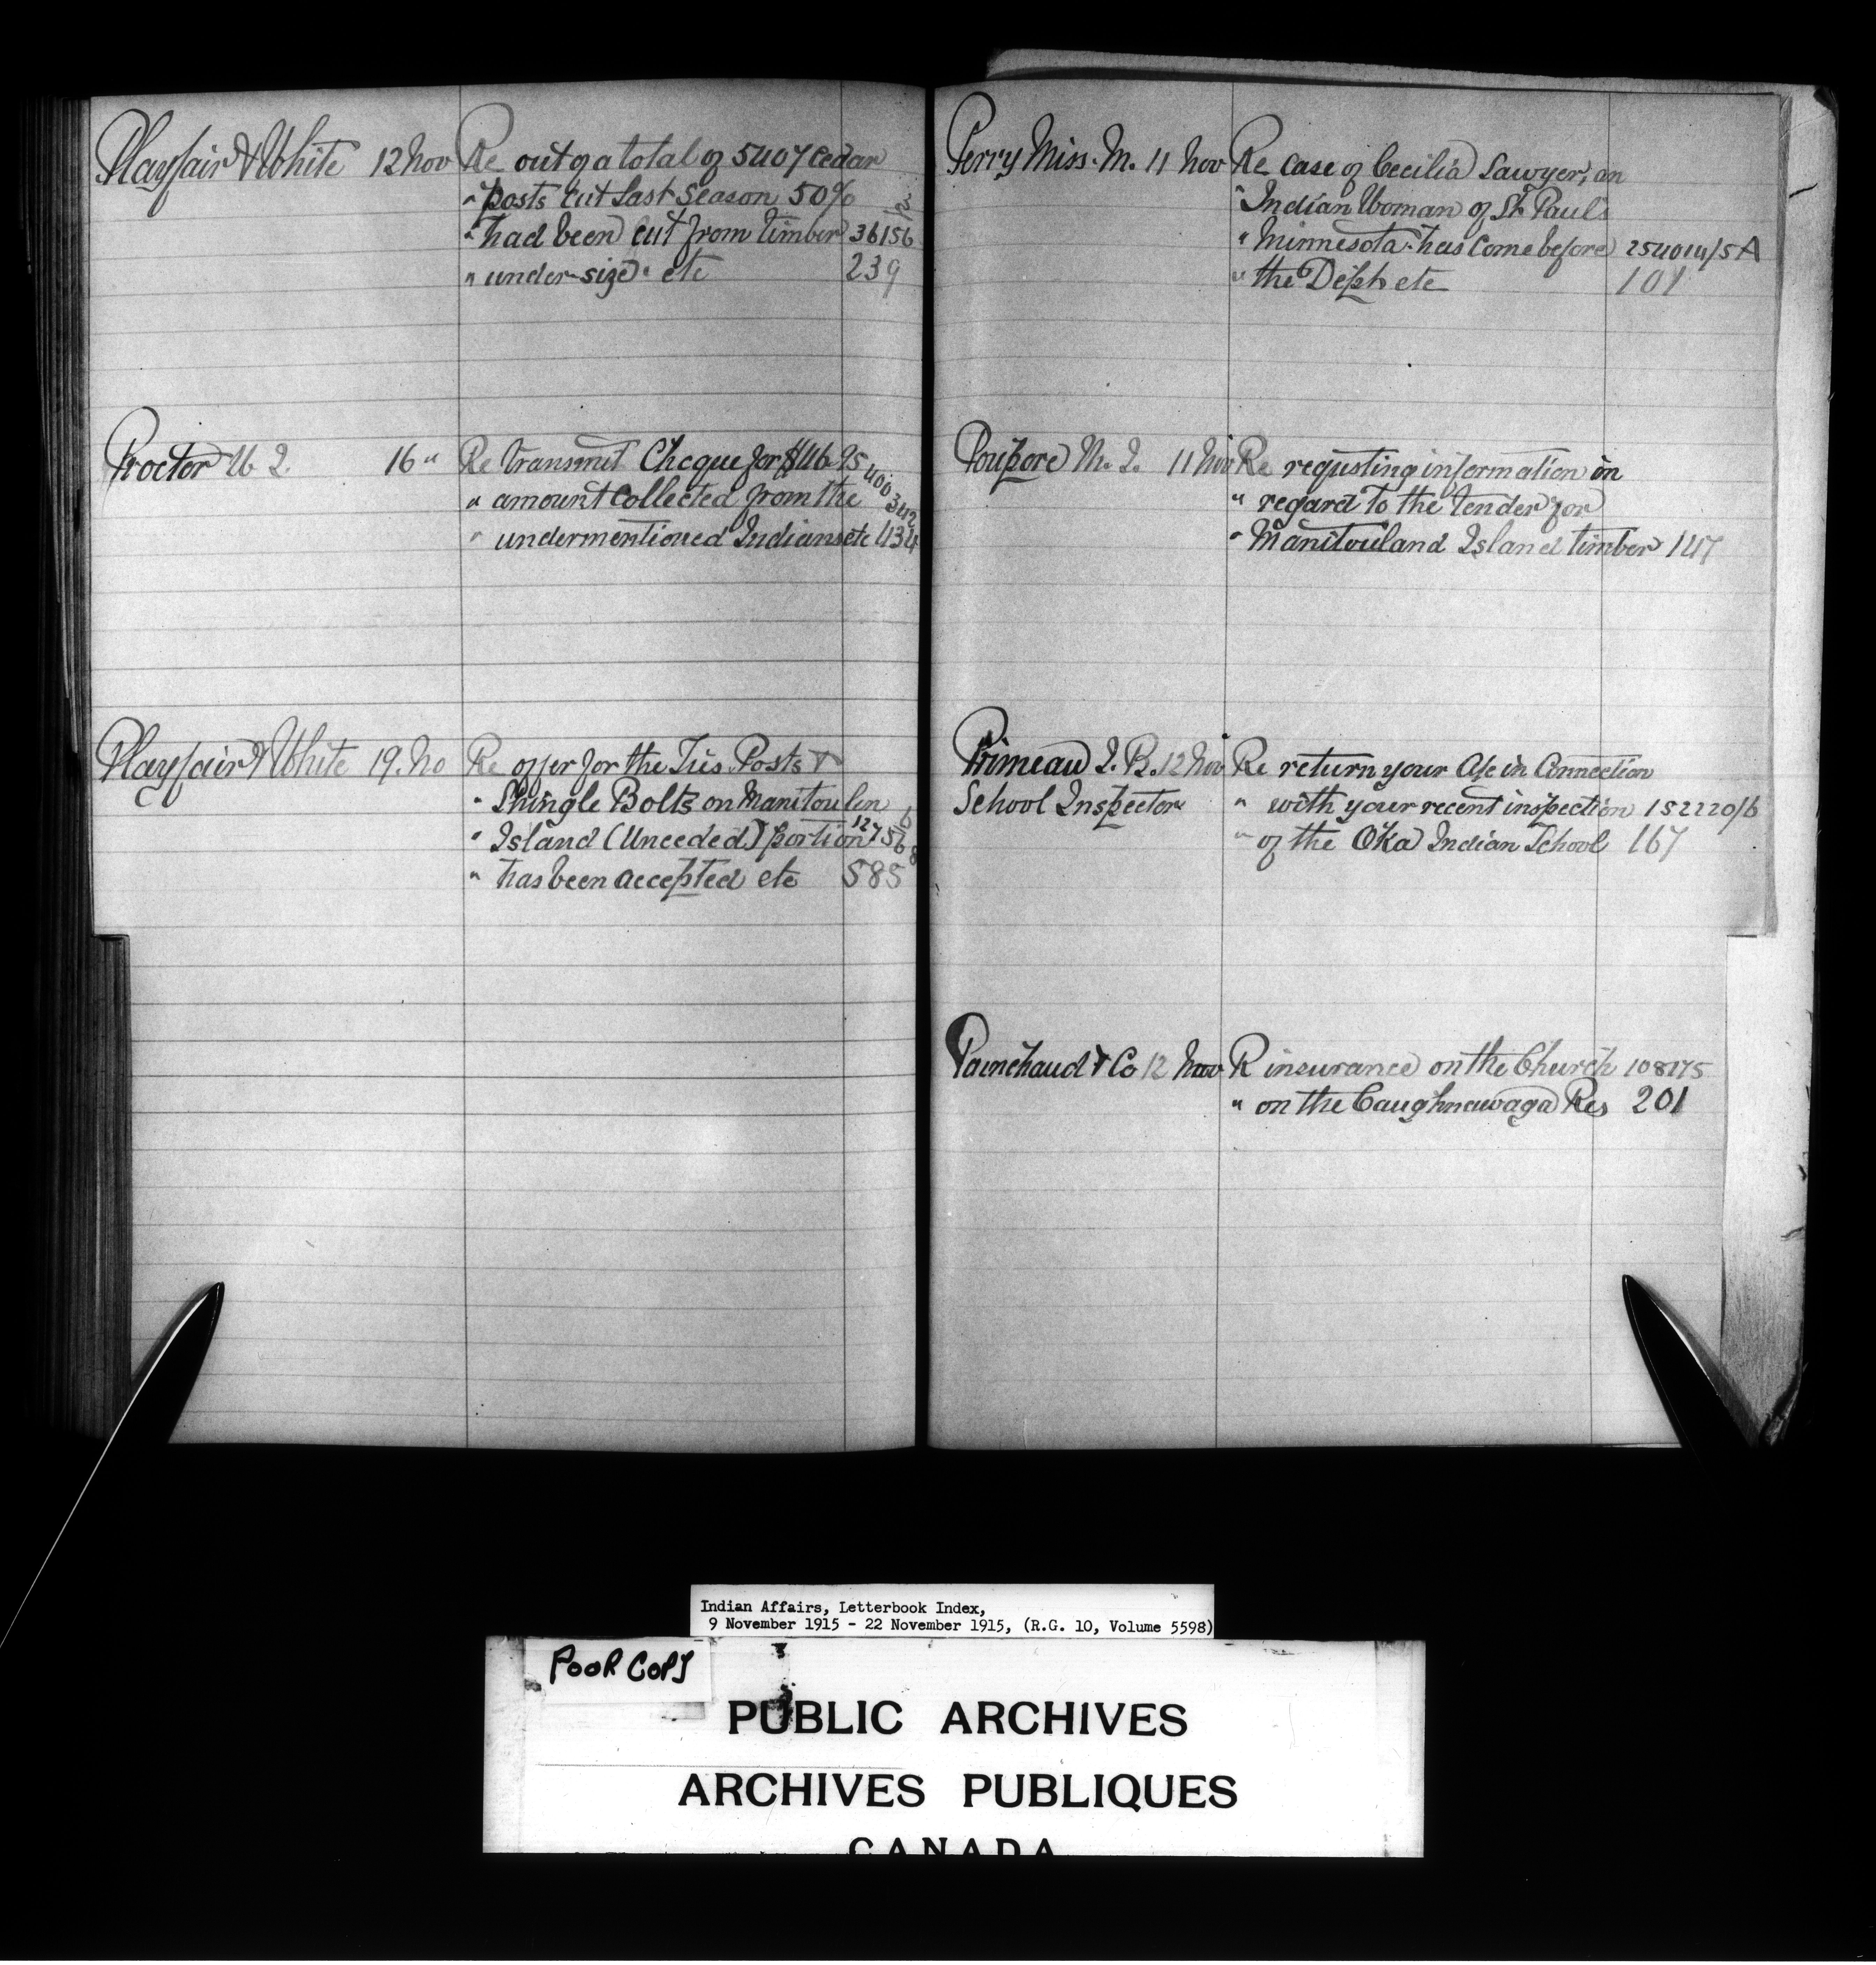 Playfair & White 12 Nov Re out of a total of 5407 Cedar
" posts cut last season 50%
" had been cut from timber 36156
" under-size" etc 239
Proctor 16 " Re transmit Cheque for $46.95
" amount Collected from the 400342
" undermentioned Indians etc 434
Playfair & White 19. No Re offer for the Ties Posts &
" Shingle Bolts on Manitoulin
" Island (Unceded) portion
" has been accepted etc 585
Perry Miss. M. 11 Nov Re Case of Cecilia Sawyer, an
" Indian Woman of St Paul's
" Minnesota has come before 254014/5A
" the Dept etc 101
Poupore M. J. 11 Nov Re requsting information in
" regard to the tender for
" Manitouland Island timber 147
Primeau J. B. 12 Nov Re return your A/c in Connection
School Inspector " with your recent inspection 152220/6
" of the Oka Indian School 167
Painchaud & Co 12 Nov R insurance on the Church 108175
" on the Caughnawaga Res 201
Indian Affairs, Letterbook Index,
9 November 1915 - 22 November 1915, (R.G. 10, Volume 5598)
POOR COPY
PUBLIC ARCHIVES
ARCHIVES PUBLIQUES
CANADA